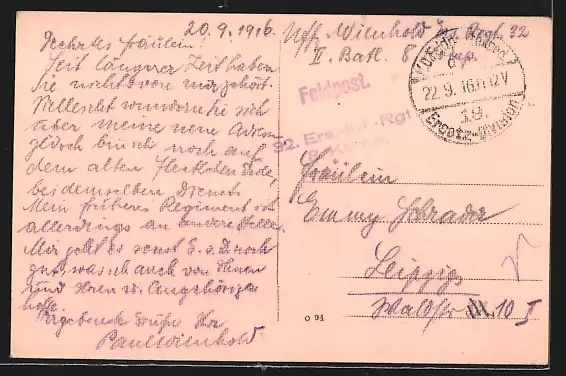 20.9.1916.
Geehrtes Fräulein!
Seit längerer Zeit haben
Sie nichts von mir gehört.
Vielleicht wundern Sie sich
über meine neue Adresse
jedoch bin ich noch auf
dem alten Fleckchen Erde,
bei demselben Dienst.
Mein früheres Regiment ist
allerdings an andere Stelle.
Mir geht es sonst G. s. D. noch
gut, was ich auch von Ihnen
und Ihren w. Angehörigen
hoffe.
Ergebenste Grüße Ihr
Paul Wienhold
Uff. Wienhold Regt. 32
II. Batl. 8 Komp.
Feldpost.
32. Ers.-Inf.-Rgt
22.9.16.11-12V
19.
Ersatz-Division
Fräulein
Emmy Schrader
Leipzig
Waldstr. 10 I
O 94